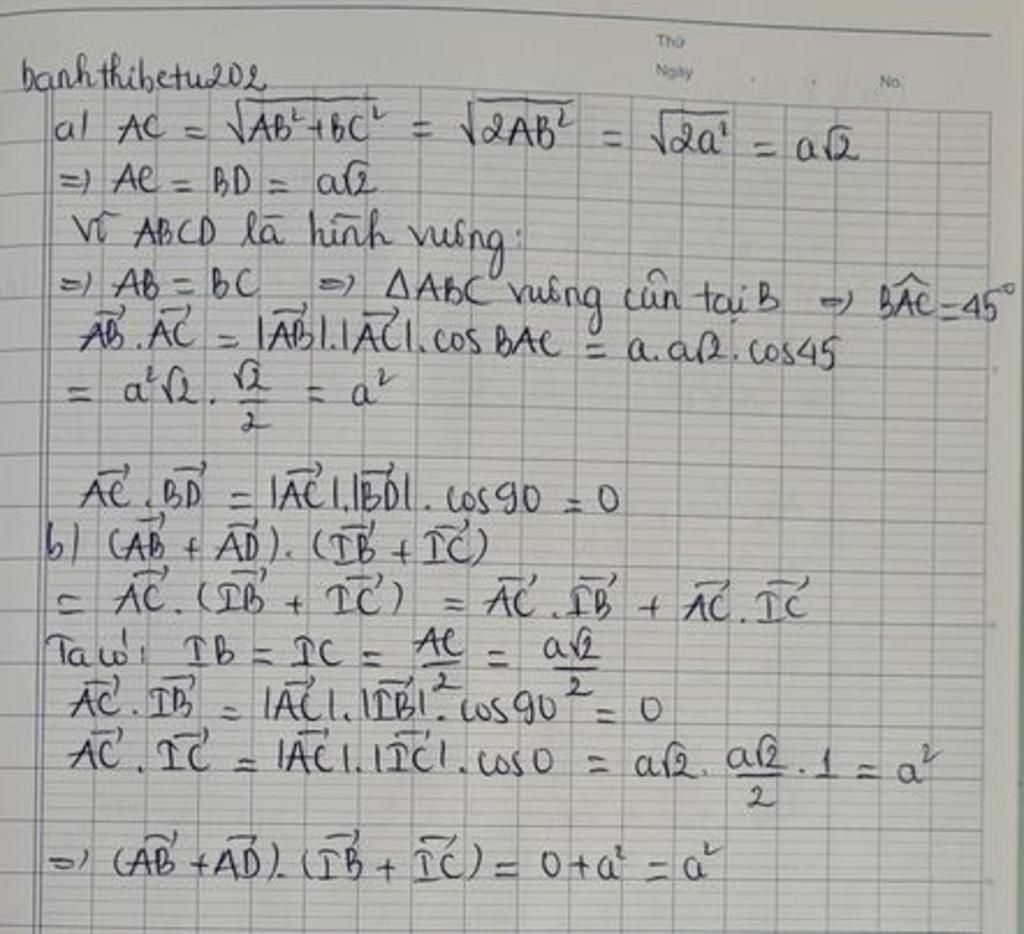 Thứ
Ngày No.
banhthibetu202
a) AC = √(AB² + BC²) = √(2AB²) = √(2a²) = a√2
=> AC = BD = a√2
Vì ABCD là hình vuông:
=> AB = BC => ΔABC vuông cân tại B => BAC^ = 45°
AB→ . AC→ = |AB→|.|AC→|. cos BAC = a.a√2. cos45
= a²√2 . √2/2 = a²
AC→ . BD→ = |AC→|.|BD→|. cos90 = 0
b) (AB→ + AD→). (IB→ + IC→)
= AC→. (IB→ + IC→) = AC→ . IB→ + AC→ . IC→
Ta có: IB = IC = AC/2 = a√2/2
AC→. IB→ = |AC→|. |IB→|. cos90 = 0
AC→ . IC→ = |AC→|. |IC→|. cos0 = a√2. a√2/2 . 1 = a²
=> (AB→ + AD→). (IB→ + IC→) = 0 + a² = a²